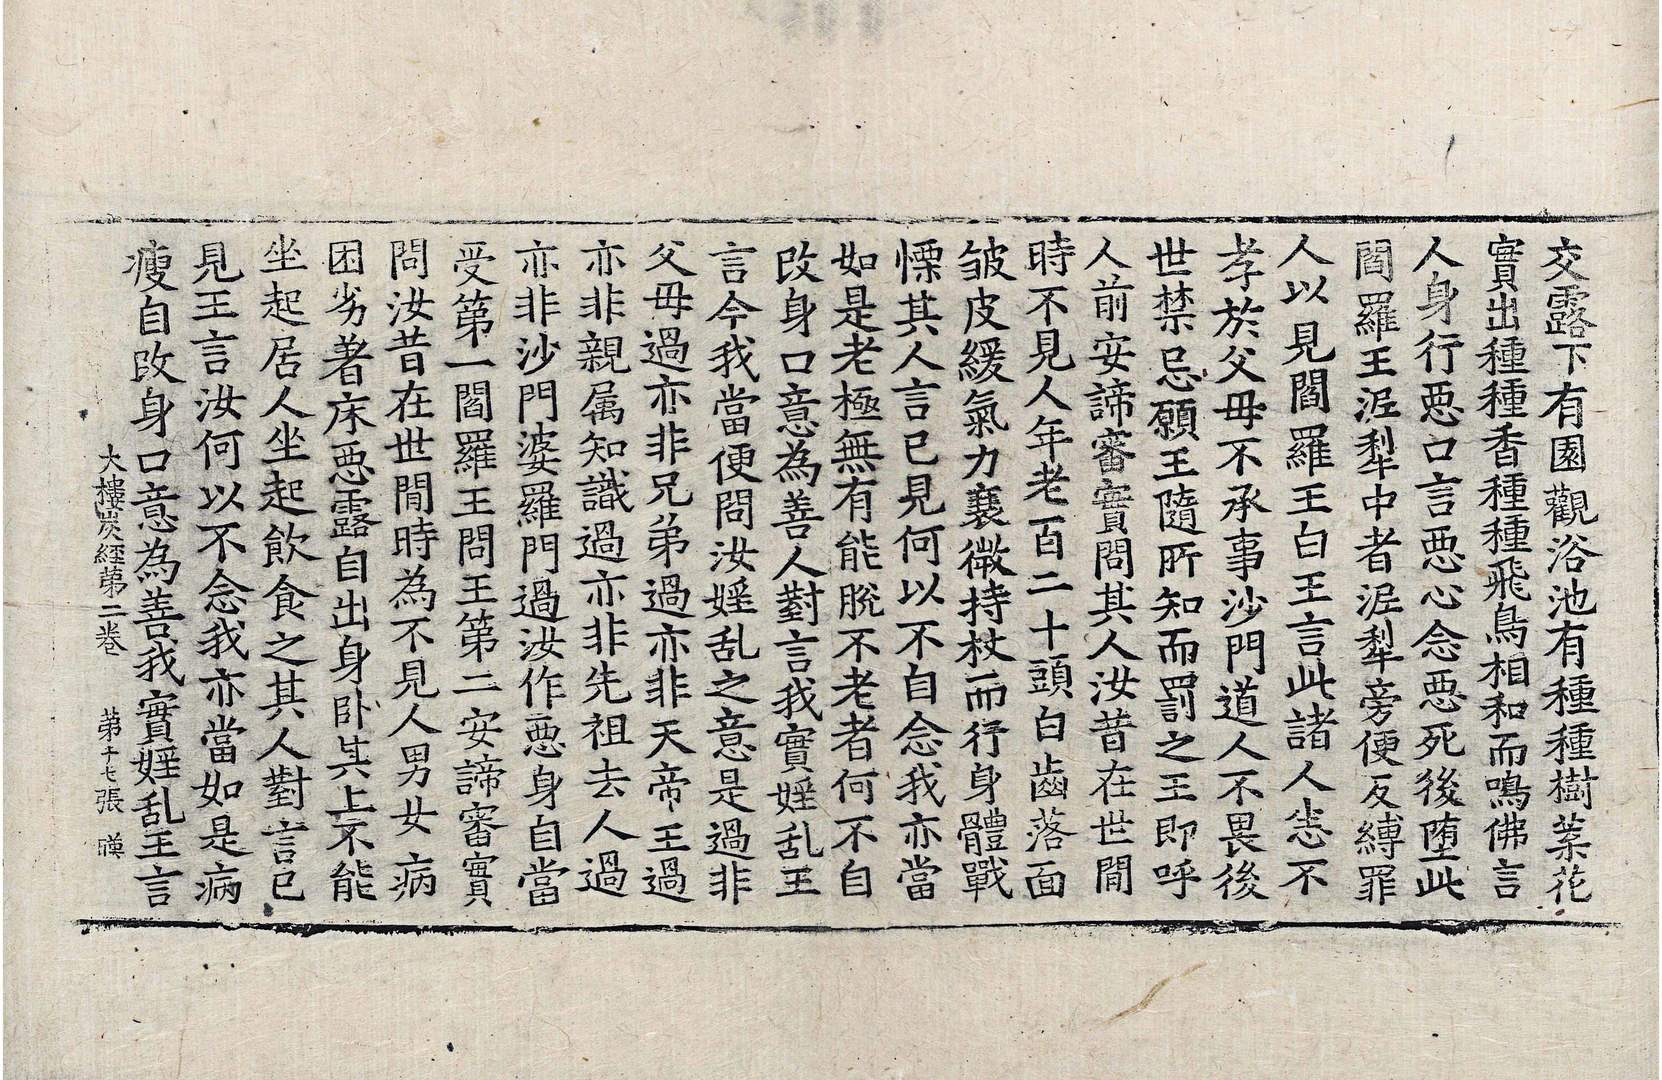 交露下有園觀浴池有種種樹葉花
實出種種香種種飛鳥相和而鳴佛言
人身行惡口言惡心念惡死後墮此
閻羅王泥犁中者泥犁旁便反縛罪
人以見閻羅王白王言此諸人恙不
孝於父母不承事沙門道人不畏後
世禁忌願王隨所知而罰之王即呼
人前安諦審實問其人汝昔在世間
時不見人年老百二十頭白齒落面
皱皮緩氣力衰微持杖而行身體戰
慄其人言已見何以不自念我亦當
如是老極無有能脫不老者何不自
改身口意為善人對言我實婬乱王
言今我當便問汝婬乱之意是過非
父母過亦非兄弟過亦非天帝王過
亦非親属知識過亦非先祖去人過
亦非沙門婆羅門過汝作惡身自當
受第一閻羅王問王第二安諦審實
問汝昔在世間時為不見人男女病
困劣著床惡露自出身卧其上不能
坐起居人坐起飲食之其人對言已
見王言汝何以不念我亦當如是病
瘦自改身口意為善我實婬乱王言
大樓炭經第二卷 第十七張 暎